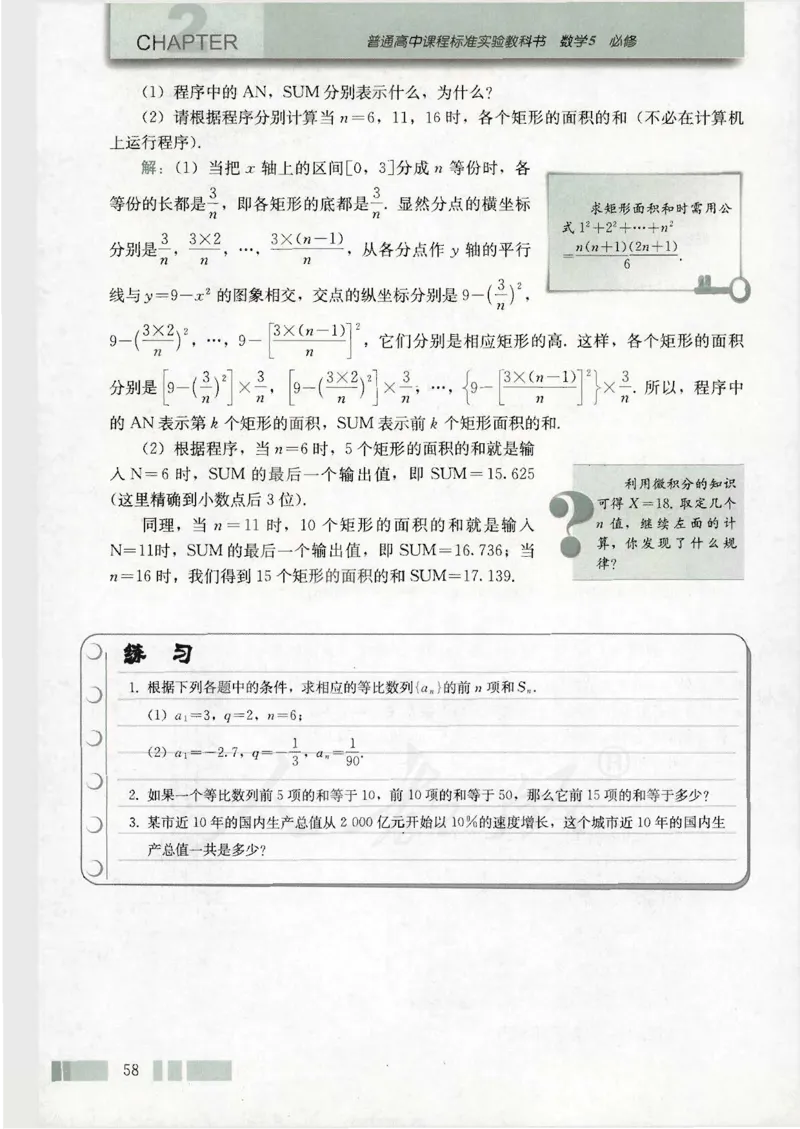 CHAPTER 2 普通高中课程标准实验教科书 数学5 必修
(1) 程序中的 AN,SUM 分别表示什么,为什么?
(2) 请根据程序分别计算当 n=6,11,16 时,各个矩形的面积的和(不必在计算机
上运行程序).
解:(1) 当把 x 轴上的区间[0,3]分成 n 等份时,各
等份的长都是3/n,即各矩形的底都是3/n. 显然分点的横坐标
分别是3/n,3×2/n,…,3×(n-1)/n,从各分点作 y 轴的平行
线与 y=9-x² 的图象相交,交点的纵坐标分别是 9-(3/n)²,
9-(3×2/n)²,…,9-[3×(n-1)/n]²,它们分别是相应矩形的高. 这样,各个矩形的面积
分别是[9-(3/n)²]×3/n,[9-(3×2/n)²]×3/n,…,{9-[3×(n-1)/n]²}×3/n. 所以,程序中
的 AN 表示第 k 个矩形的面积,SUM 表示前 k 个矩形面积的和.
求矩形面积和时需用公
式 1²+2²+…+n²
=n(n+1)(2n+1)/6.
(2) 根据程序,当 n=6 时,5 个矩形的面积的和就是输
入 N=6 时,SUM 的最后一个输出值,即 SUM=15.625
(这里精确到小数点后 3 位).
同理,当 n=11 时,10 个矩形的面积的和就是输入
N=11时,SUM 的最后一个输出值,即 SUM=16.736;当
n=16 时,我们得到 15 个矩形的面积的和 SUM=17.139.
利用微积分的知识
可得 X=18. 取定几个
n 值,继续左面的计
算,你发现了什么规
律?
练 习
1. 根据下列各题中的条件,求相应的等比数列{aₙ}的前 n 项和 Sₙ.
(1) a₁=3,q=2,n=6;
(2) a₁=-2.7,q=-1/3,aₙ=1/90.
2. 如果一个等比数列前 5 项的和等于 10,前 10 项的和等于 50,那么它前 15 项的和等于多少?
3. 某市近 10 年的国内生产总值从 2 000 亿元开始以 10%的速度增长,这个城市近 10 年的国内生
产总值一共是多少?
58